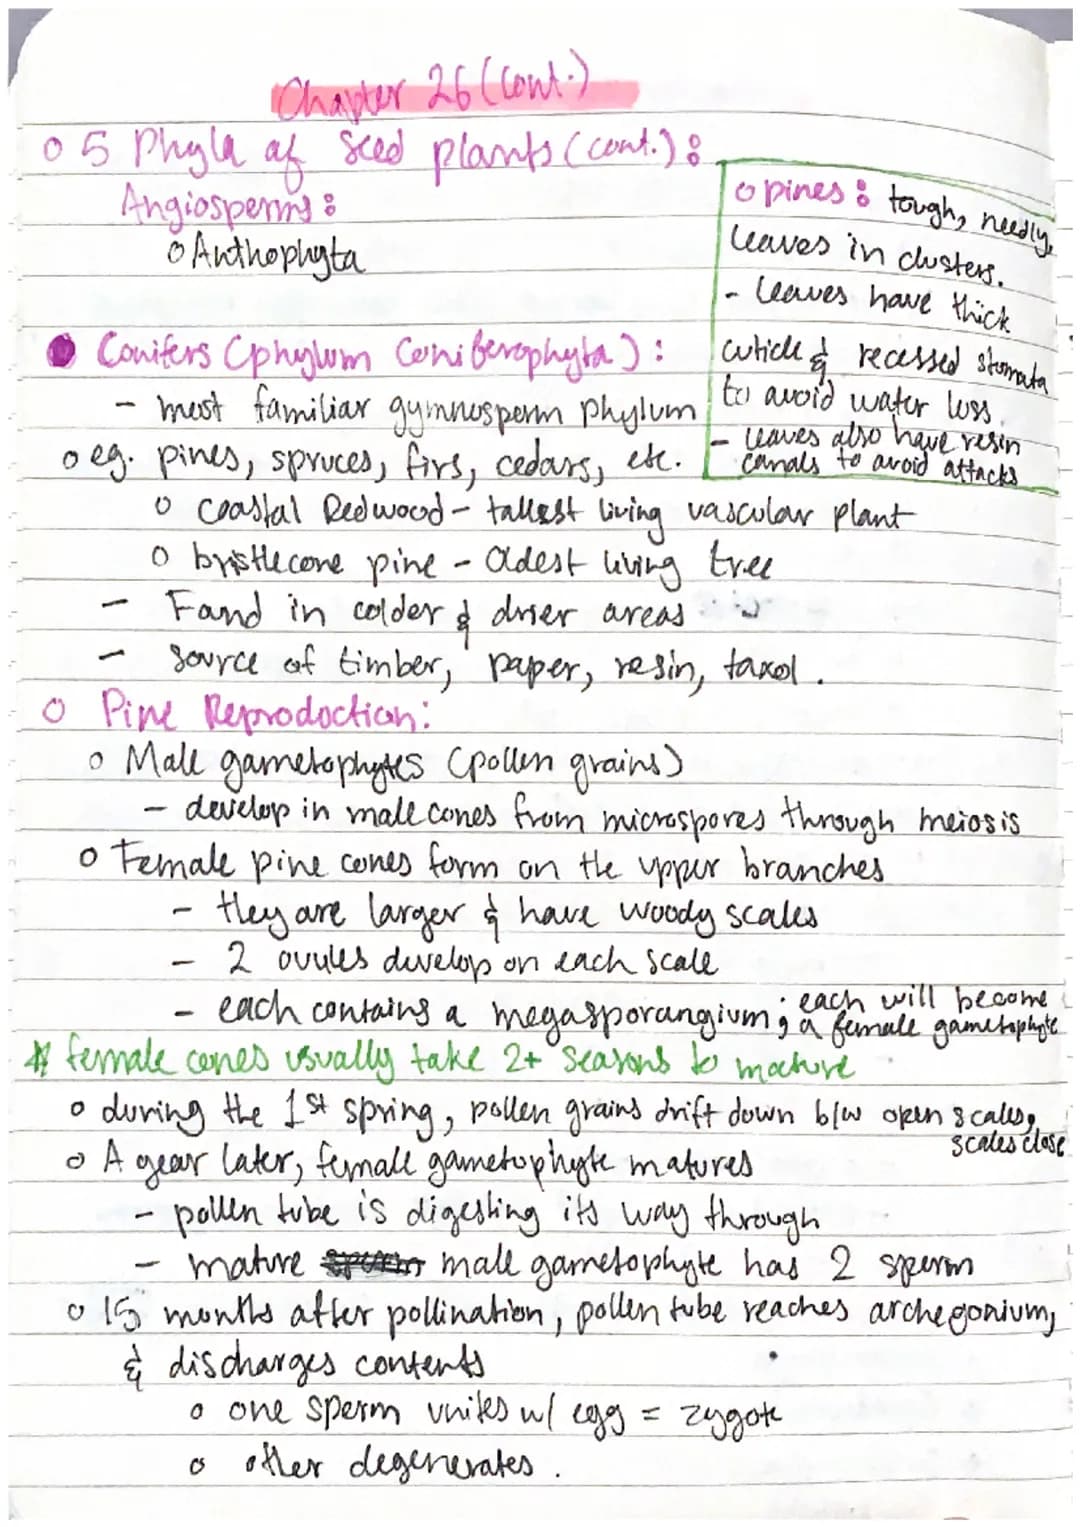 Chapter 26 (Cont.)
o 5 Phyla of Seed plants (cont.):
Angiosperms:
o Anthophyta
o pines: tough, needly
leaves in clusters.
- leaves have thick
cuticle & recessed stomata
to avoid water loss.
- leaves also have resin
canals to avoid attacks
Conifers (phylum Coniferophyta):
- most familiar gymnosperm phylum
o eg. pines, spruces, firs, cedars, etc.
o Coastal Redwood - tallest living vascular plant
o bristlecone pine - Oldest living tree
- Fand in colder & drier areas
- source of timber, paper, resin, taxol.
o Pine Reprodoction:
o Male gametophytes (pollen grains)
- develop in male cones from microspores through meiosis
o Female pine cones form on the upper branches
- they are larger & have woody scales
- 2 ovules develop on each scale
- each contains a megasporangium; each will become
a female gametophyte
* female cones usually take 2+ seasons to mature
o during the 1st spring, pollen grains drift down b/w open scales,
scales close
o A year later, female gametophyte matures
- pollen tube is digesting its way through
- mature male gametophyte has 2 sperm
o 15 months after pollination, pollen tube reaches archegonium,
& discharges contents
o one sperm unites w/ egg = zygote
o other degenerates.